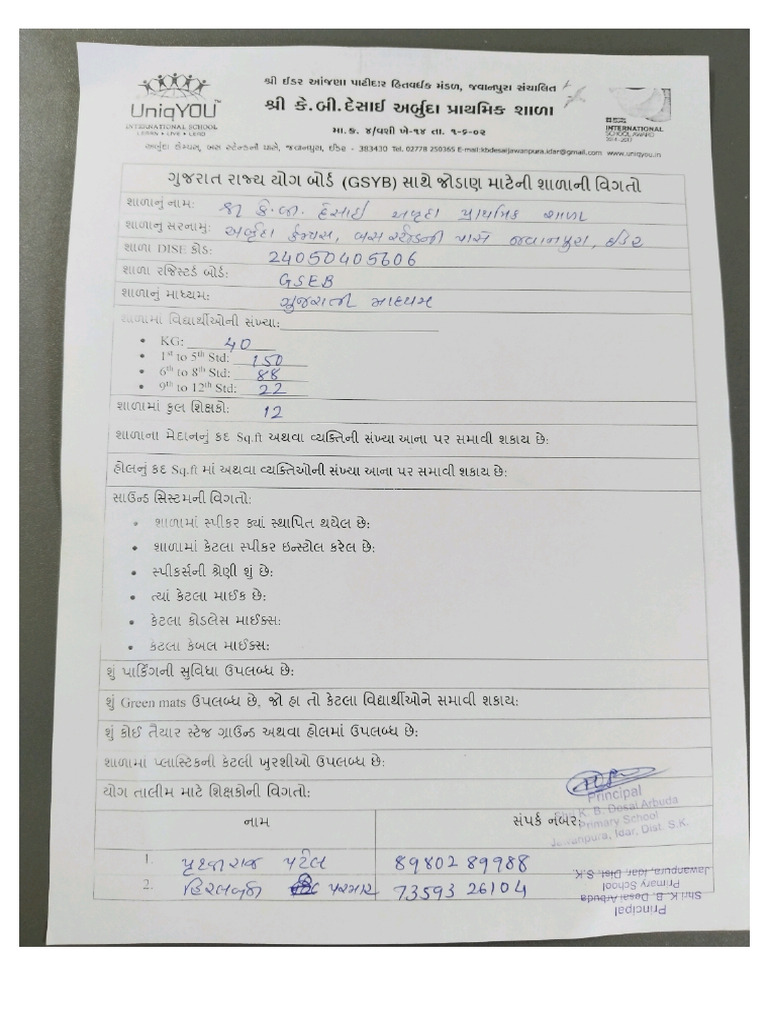 શ્રી ઈડર આંજણા પાટીદાર હિતવર્ધક મંડળ, જવાનપુરા સંચાલિત
શ્રી કે.બી.દેસાઈ અર્બુદા પ્રાથમિક શાળા
UniqYOU™
INTERNATIONAL SCHOOL
LEARN • LIVE • LEAD
મા.ક્ર. ૪/વશી ખે-૧૪ તા. ૧-૬-૦૨
INTERNATIONAL
SCHOOL AWARD
2014-2017
અર્બુદા કેમ્પસ, બસ સ્ટેન્ડની પાસે, જવાનપુરા, ઈડર - 383430 Tel. 02778 250365 E-mail:kbdesaijawanpura.idar@gmail.com www.uniqyou.in
ગુજરાત રાજ્ય યોગ બોર્ડ (GSYB) સાથે જોડાણ માટેની શાળાની વિગતો
શાળાનું નામ: શ્રી કે.બી. દેસાઈ અર્બુદા પ્રાથમિક શાળા
શાળાનુ સરનામુ: અર્બુદા કેમ્પસ, બસ સ્ટેન્ડની પાસે જવાનપુરા, ઈડર
શાળા DISE કોડ: 24050405606
શાળા રજિસ્ટર્ડ બોર્ડ: GSEB
શાળાનું માધ્યમ: ગુજરાતી માધ્યમ
શાળામાં વિદ્યાર્થીઓની સંખ્યા:
• KG: 40
• 1st to 5th Std: 150
• 6th to 8th Std: 88
• 9th to 12th Std: 22
શાળામાં કુલ શિક્ષકો: 12
શાળાના મેદાનનું કદ Sq.ft અથવા વ્યક્તિની સંખ્યા આના પર સમાવી શકાય છે:
હોલનું કદ Sq.ft માં અથવા વ્યક્તિઓની સંખ્યા આના પર સમાવી શકાય છે:
સાઉન્ડ સિસ્ટમની વિગતો:
• શાળામાં સ્પીકર ક્યાં સ્થાપિત થયેલ છે:
• શાળામાં કેટલા સ્પીકર ઇન્સ્ટોલ કરેલ છે:
• સ્પીકર્સની શ્રેણી શું છે:
• ત્યાં કેટલા માઈક છે:
• કેટલા કોડલેસ માઈક્સ:
• કેટલા કેબલ માઈક્સ:
શું પાર્કિંગની સુવિધા ઉપલબ્ધ છે:
શું Green mats ઉપલબ્ધ છે, જો હા તો કેટલા વિદ્યાર્થીઓને સમાવી શકાય:
શું કોઈ તૈયાર સ્ટેજ ગ્રાઉન્ડ અથવા હોલમાં ઉપલબ્ધ છે:
શાળામાં પ્લાસ્ટિકની કેટલી ખુરશીઓ ઉપલબ્ધ છે:
યોગ તાલીમ માટે શિક્ષકોની વિગતો:
Principal
K. B. Desai Arbuda
Primary School
Jawanpura, Idar, Dist. S.K.
નામ સંપર્ક નંબર:
1. પૃથ્વીરાજ પટેલ 89802 89988
2. હિરલબેન પરમાર 73593 26104
Principal
Shri K. B. Desai Arbuda
Primary School
Jawanpura, Idar, Dist. S.K.